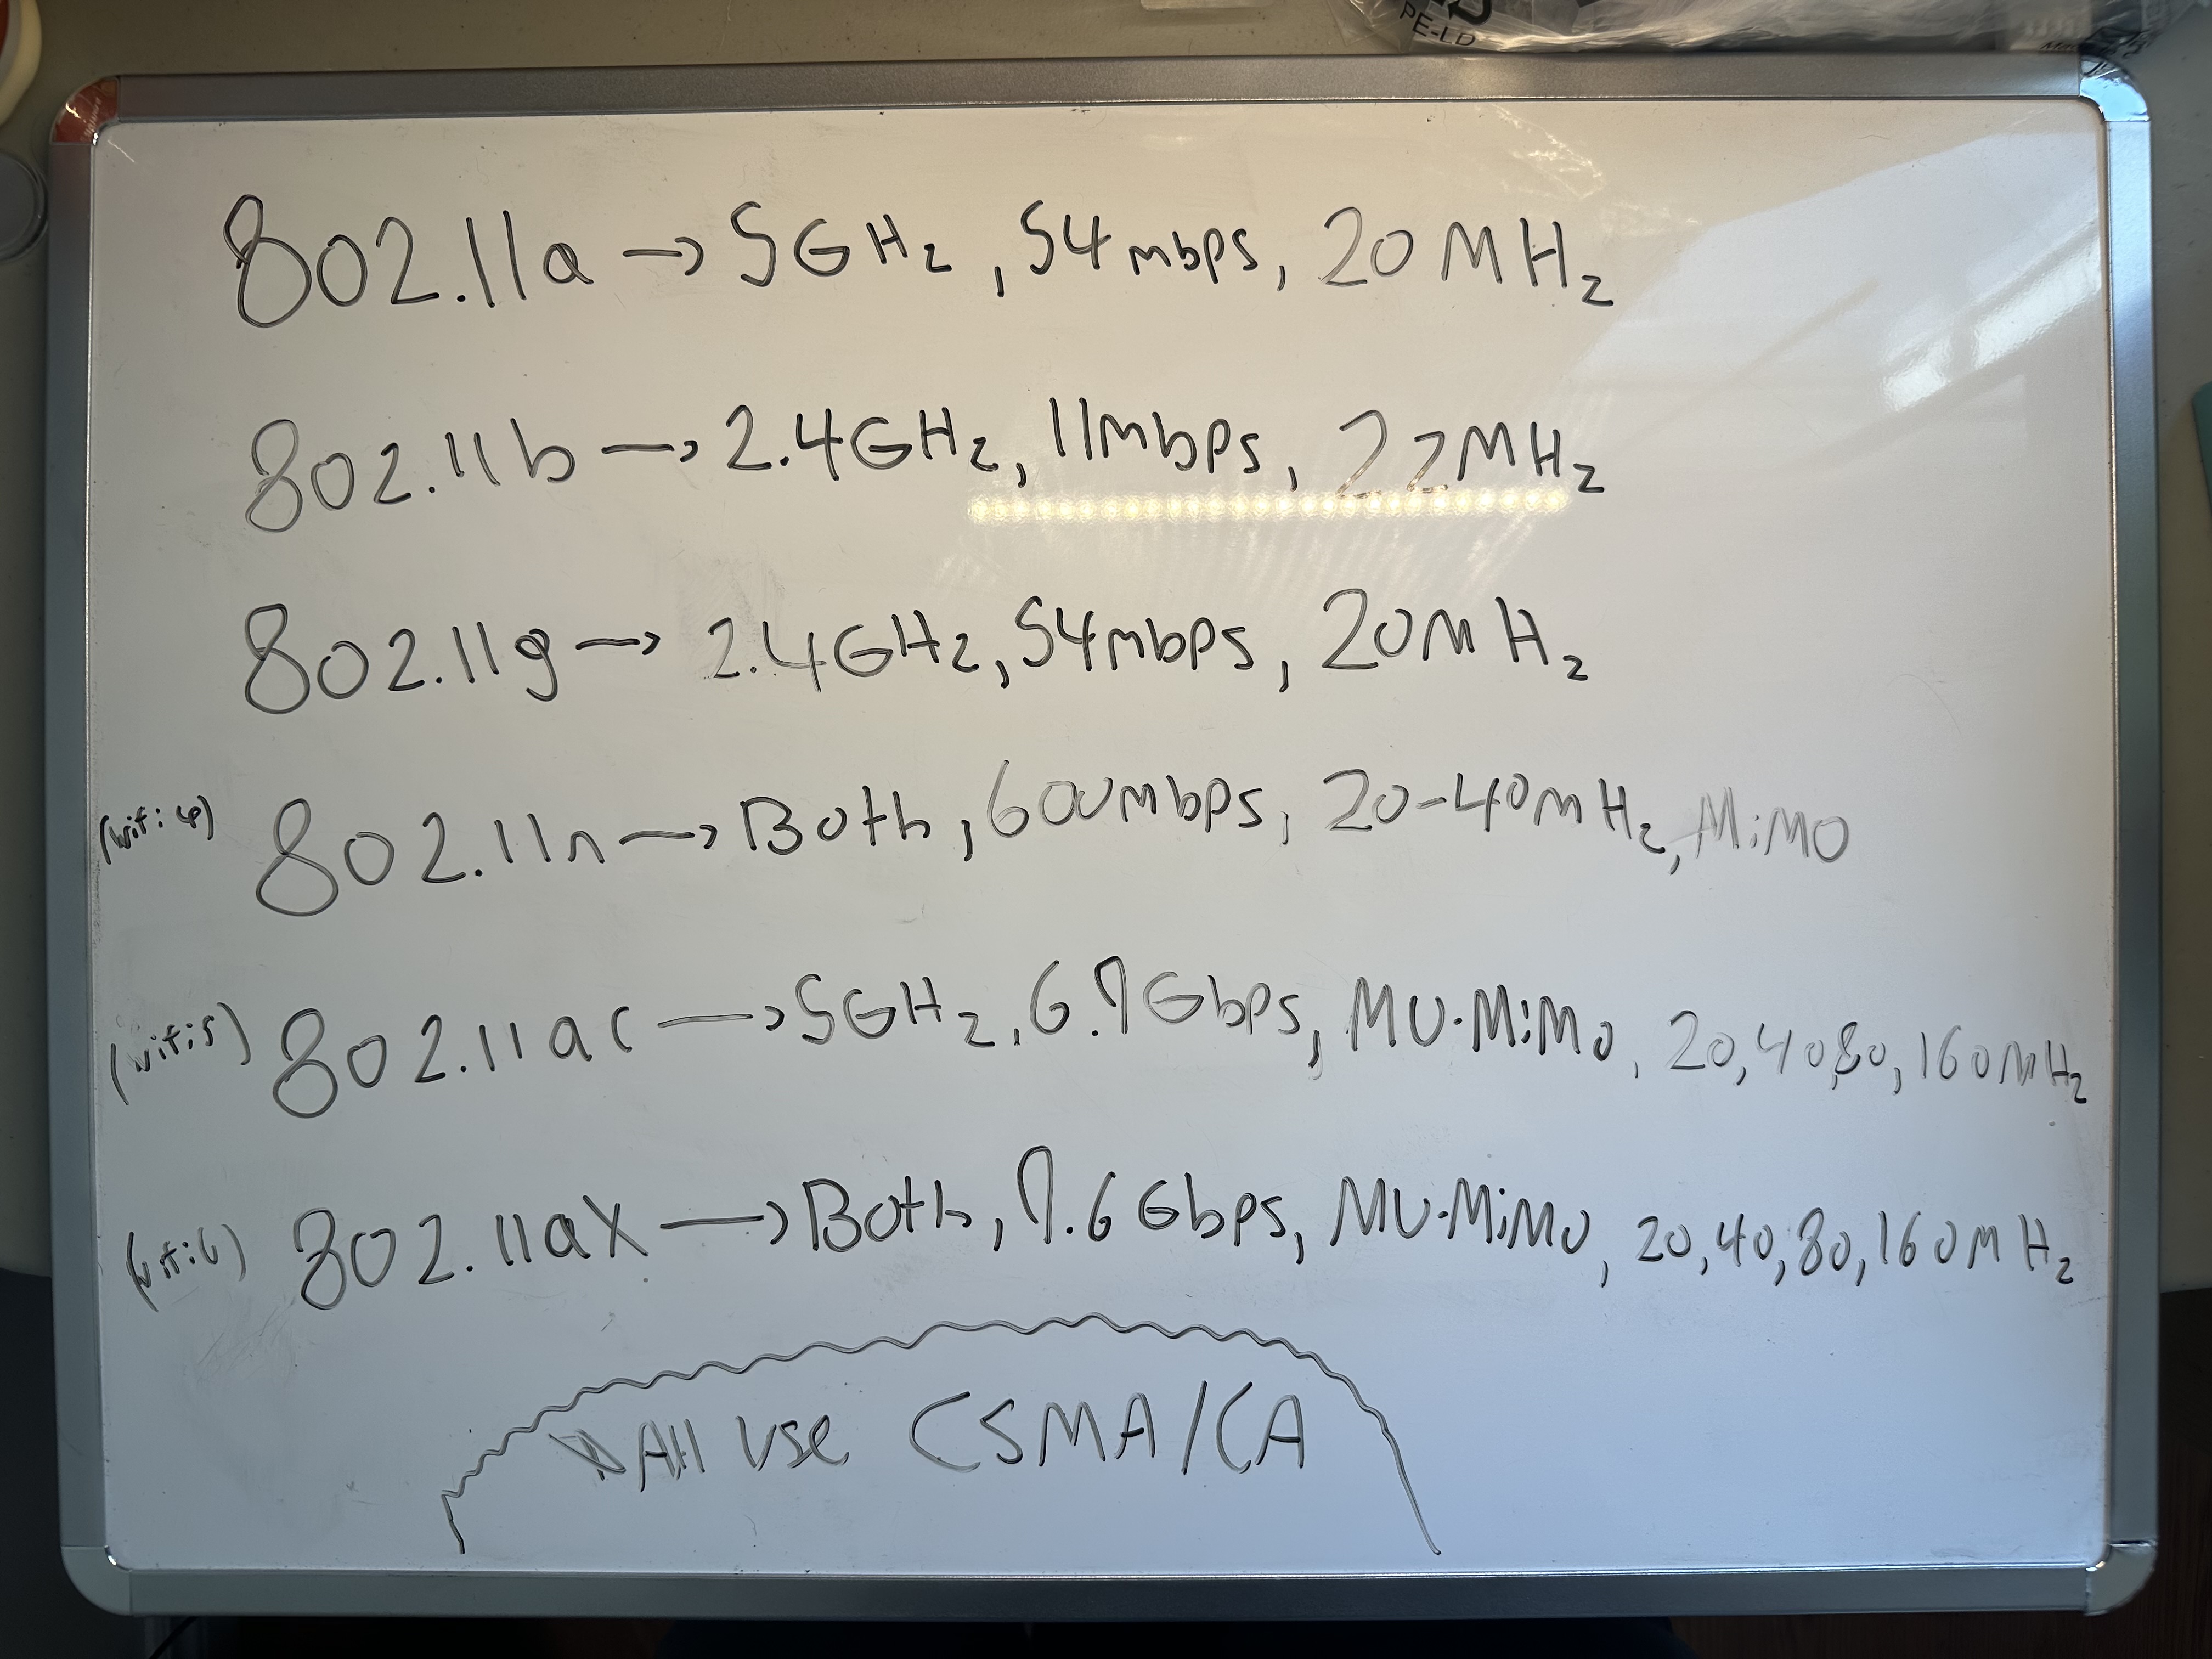 PE-LD
802.11a → 5GHz, 54mbps, 20MHz
802.11b → 2.4GHz, 11mbps, 22MHz
802.11g → 2.4GHz, 54mbps, 20MHz
(wifi 4) 802.11n → Both, 600mbps, 20-40mHz, MiMO
(wifi 5) 802.11ac → 5GHz, 6.9Gbps, MU-MiMO, 20,40,80,160MHz
(wifi 6) 802.11ax → Both, 9.6Gbps, MU-MiMO, 20,40,80,160MHz
All use CSMA/CA